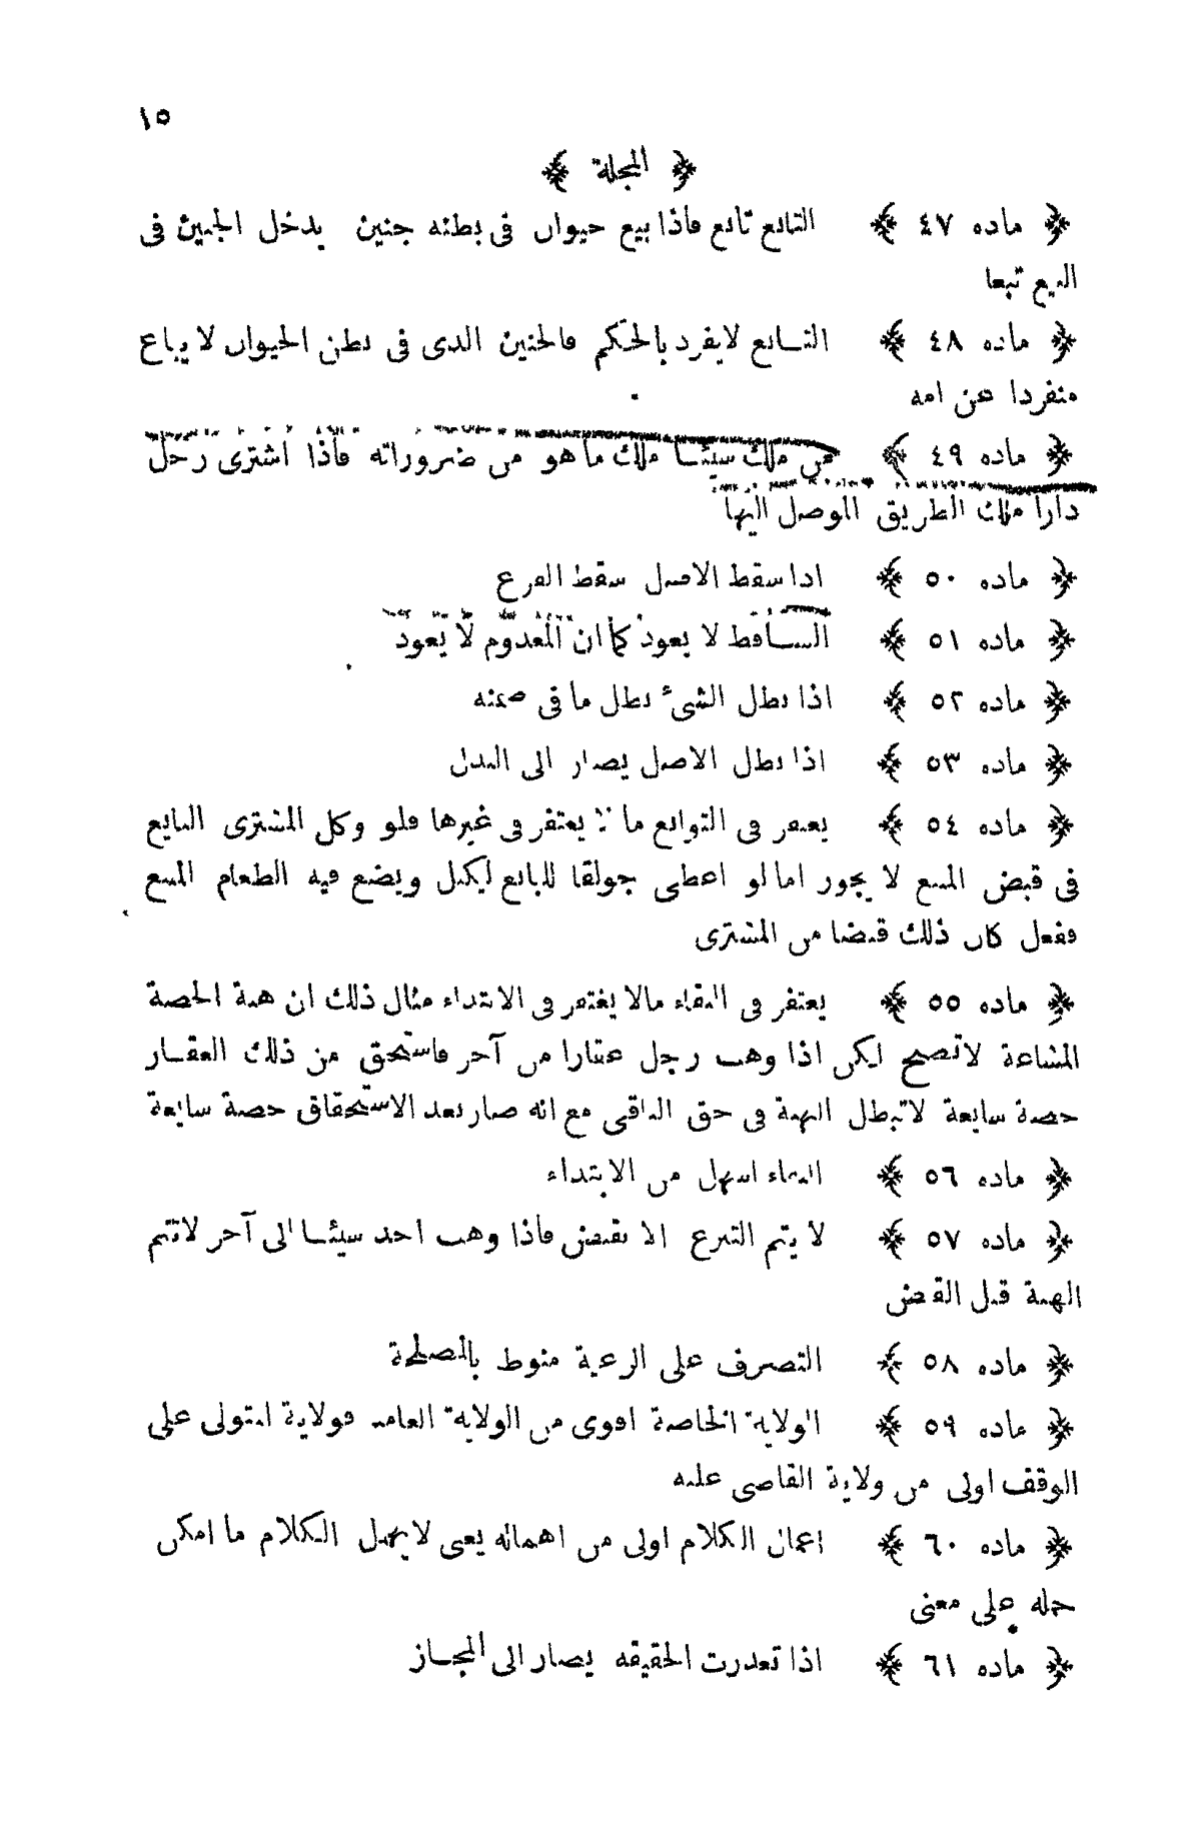 ١٥
﴿ المجلة ﴾
﴿ ماده ٤٧ ﴾ التابع تابع فاذا بيع حيوان فى بطنه جنين يدخل الجنين فى
البيع تبعا
﴿ ماده ٤٨ ﴾ التابع لا يفرد بالحكم فالجنين الذى فى بطن الحيوان لا يباع
منفردا عن امه
﴿ ماده ٤٩ ﴾ من ملك شيئا ملك ما هو من ضروراته فاذا اشترى رجل
دارا ملك الطريق الموصل اليها
﴿ ماده ٥٠ ﴾ اذا سقط الاصل سقط الفرع
﴿ ماده ٥١ ﴾ الساقط لا يعود كما ان المعدوم لا يعود
﴿ ماده ٥٢ ﴾ اذا بطل الشئ بطل ما فى ضمنه
﴿ ماده ٥٣ ﴾ اذا بطل الاصل يصار الى البدل
﴿ ماده ٥٤ ﴾ يغتفر فى التوابع ما لا يغتفر فى غيرها فلو وكل المشترى البايع
فى قبض المبيع لا يجوز اما لو اعطى جولقا للبائع ليكيل ويضع فيه الطعام المبيع
ففعل كان ذلك قبضا من المشترى
﴿ ماده ٥٥ ﴾ يغتفر فى البقاء مالا يغتفر فى الابتداء مثال ذلك ان هبة الحصة
المشاعة لاتصح لكن اذا وهب رجل عقارا من آخر فاستحق من ذلك العقار
حصة شايعة لاتبطل الهبة فى حق الباقى مع انه صار بعد الاستحقاق حصة شايعة
﴿ ماده ٥٦ ﴾ البقاء اسهل من الابتداء
﴿ ماده ٥٧ ﴾ لا يتم التبرع الا بقبض فاذا وهب احد شيئا الى آخر لاتتم
الهبة قبل القبض
﴿ ماده ٥٨ ﴾ التصرف على الرعية منوط بالمصلحة
﴿ ماده ٥٩ ﴾ الولاية الخاصة اقوى من الولاية العامه فولاية المتولى على
الوقف اولى من ولاية القاضى عليه
﴿ ماده ٦٠ ﴾ اعمال الكلام اولى من اهماله يعنى لا يهمل الكلام ما امكن
حمله على معنى
﴿ ماده ٦١ ﴾ اذا تعذرت الحقيقه يصار الى المجاز